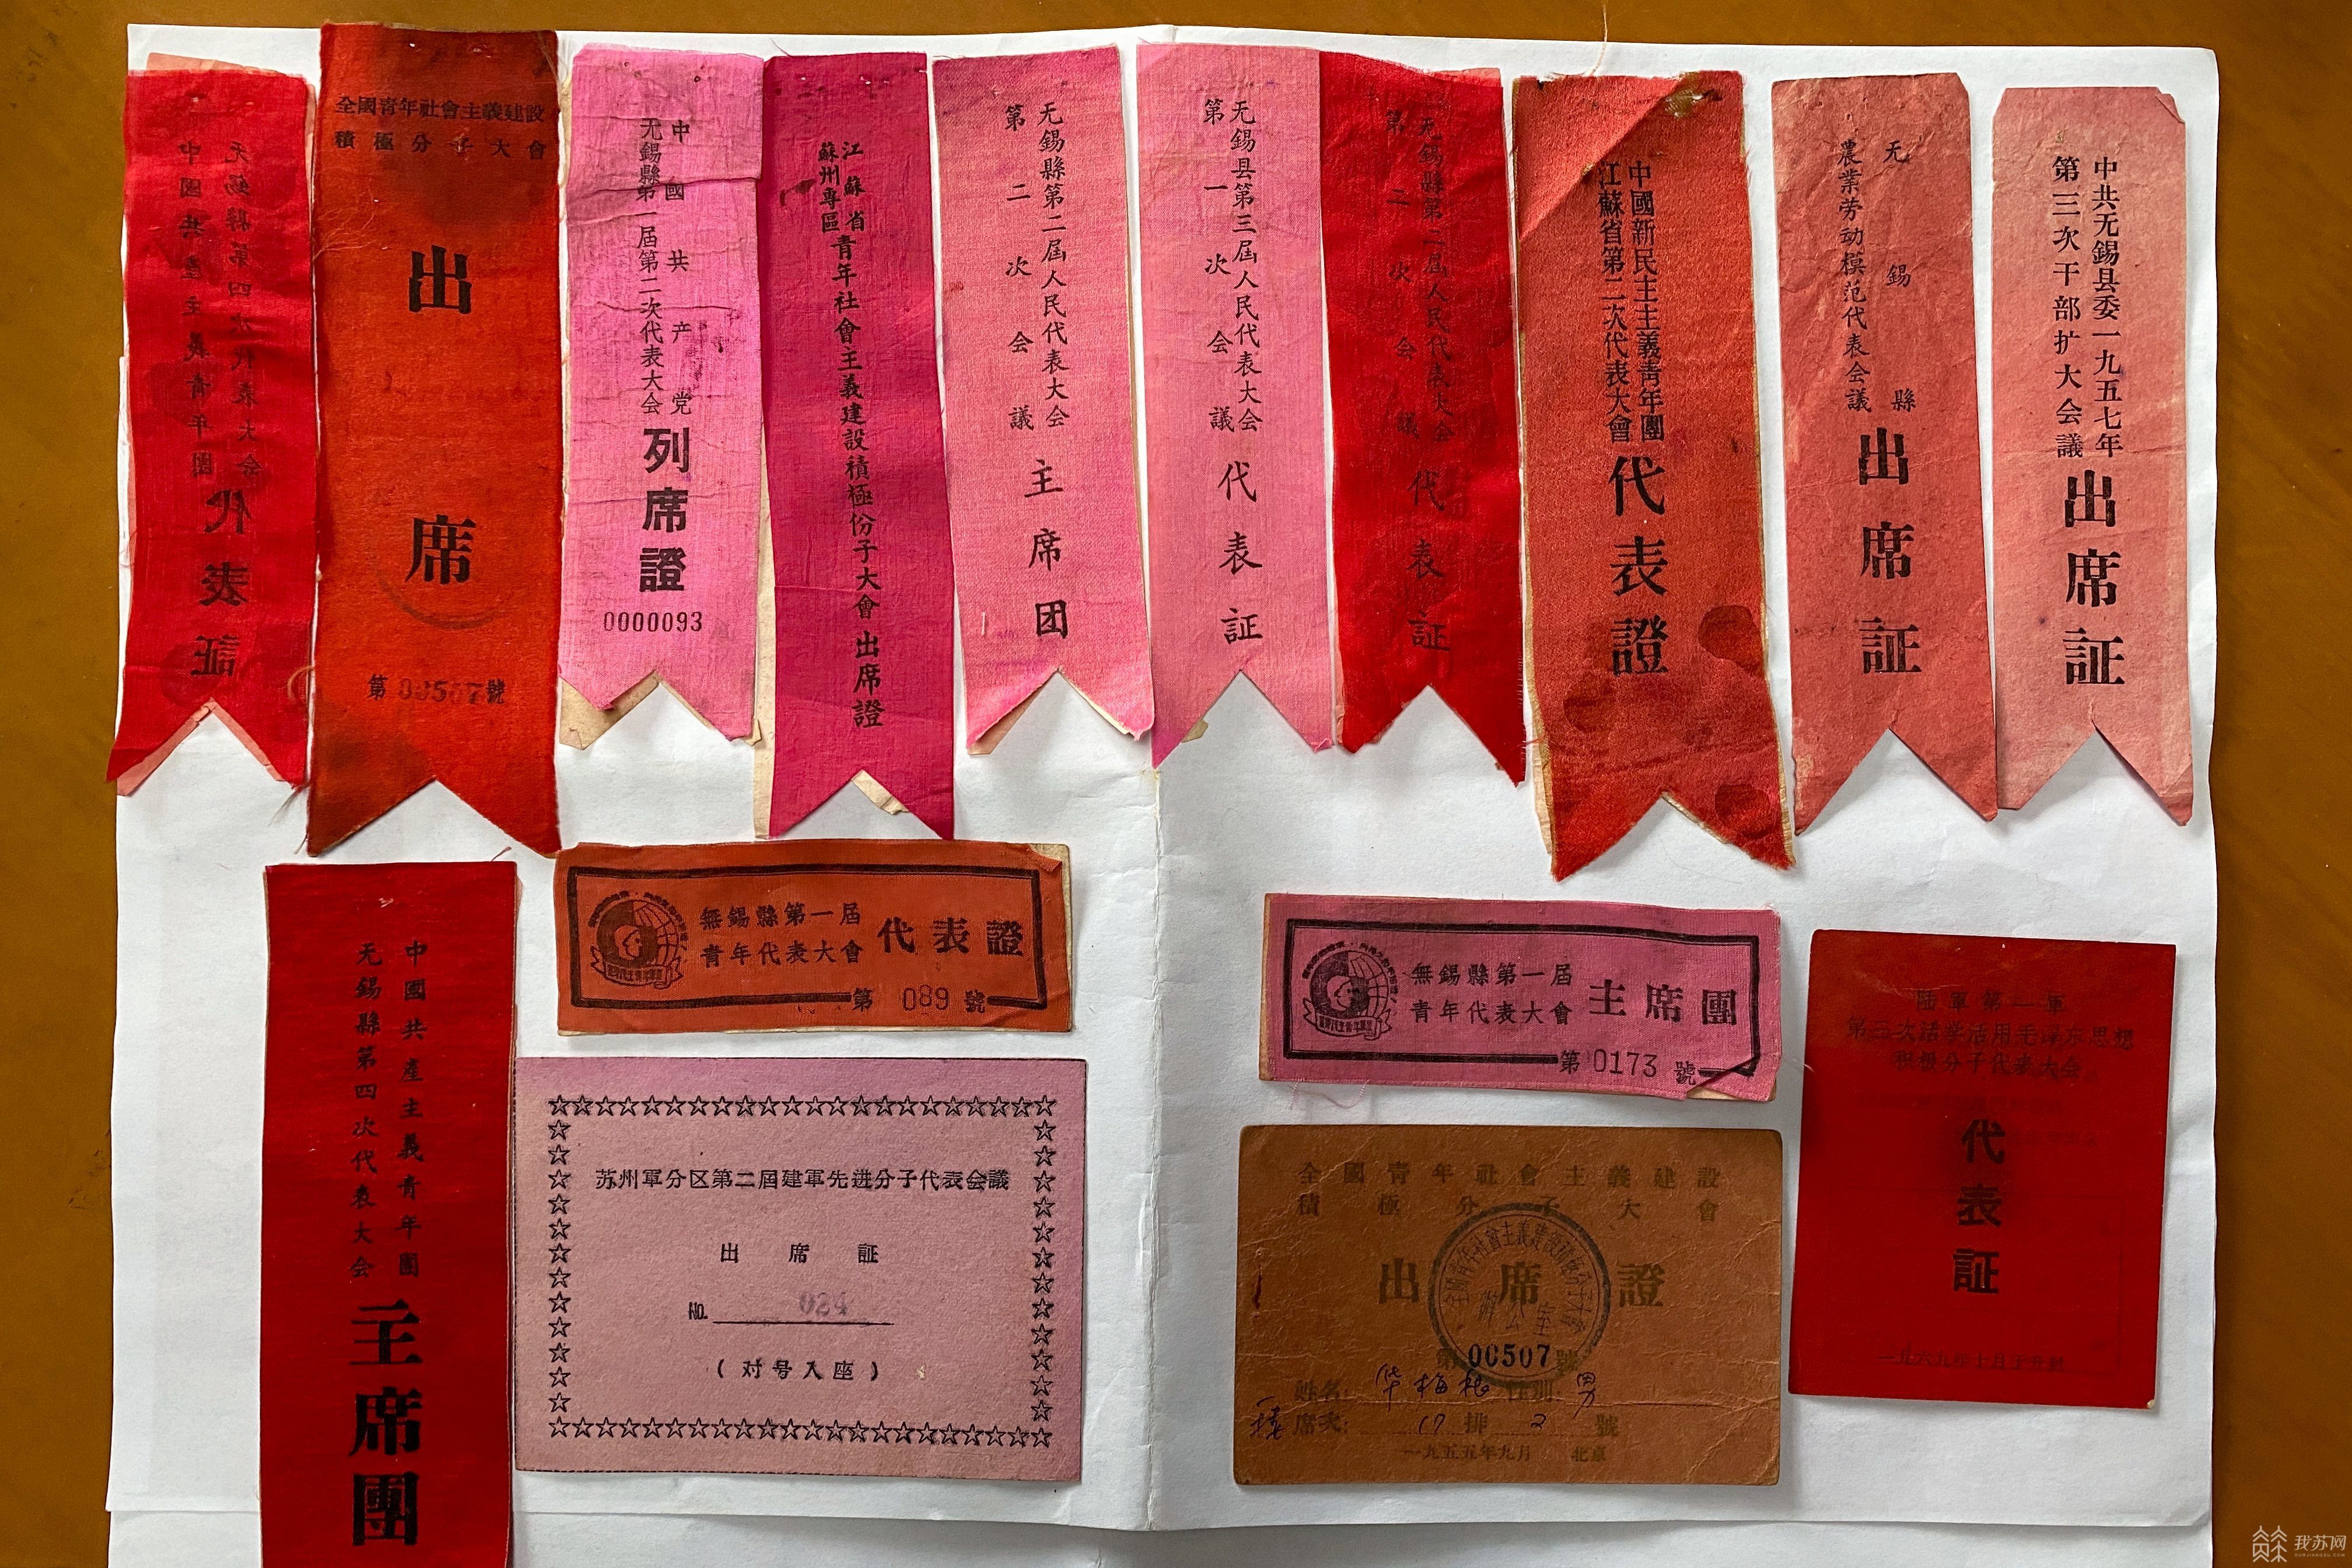 无錫縣第四次代表大会
中國共產主義青年團
代表証
全國青年社會主義建設
積極分子大會
出席
第00507號
中國共产党
无錫縣第一届第二次代表大会
列席證
0000093
江蘇省
蘇州專區
青年社會主義建設積極份子大會出席證
无錫縣第二屆人民代表大会
第二次会議
主席团
无錫县第三屆人民代表大会
第一次会議
代表証
无錫縣第二屆人民代表大会
第二次会議
代表証
中國新民主主義青年團
江蘇省第二次代表大會
代表證
无錫縣
農業劳动模范代表会議
出席証
中共无錫县委一九五七年
第三次干部扩大会議
出席証
中國共產主義青年團
无錫縣第四次代表大会
主席團
無錫縣第一届
青年代表大會
代表證
第 089 號
無錫縣第一届
青年代表大會
主席團
第 0173 號
苏州軍分区第二屆建軍先进分子代表会議
出席証
NO. 024
(对号入座)
全國青年社會主義建設
積極分子大會
出席證
全國青年社會主義建設積極分子大會
辦公室
第00507號
姓名: 华梅根 性别 男
楼 席次: 17 排 2 號
一九五五年九月 北京
陆軍第一軍
第三次活学活用毛泽东思想
积极分子代表大会
代表証
一九六九年十月于开封
我苏网